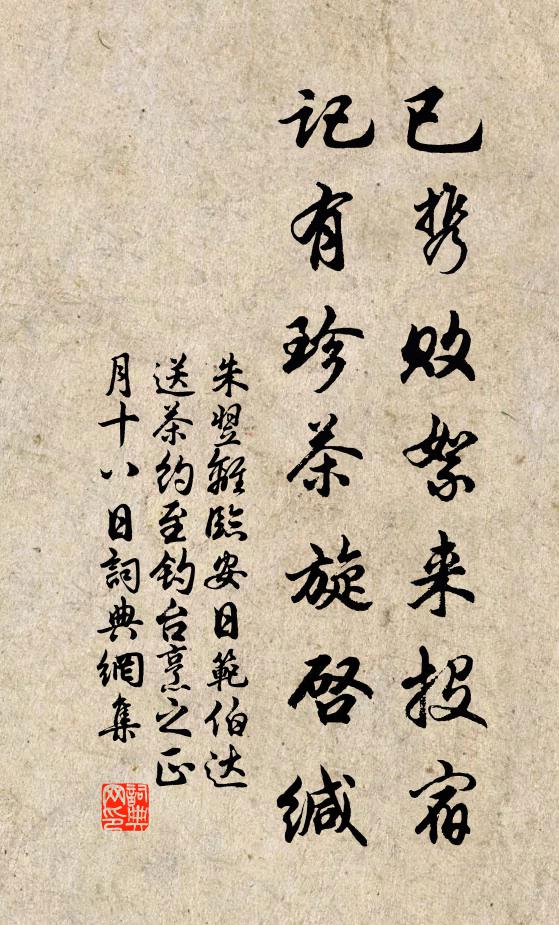 已携败絮来投宿
记有珍茶旋启缄
朱翌離臨安日範伯达
送茶约至钓台烹之正
月十八日詞典網集
詞典网印